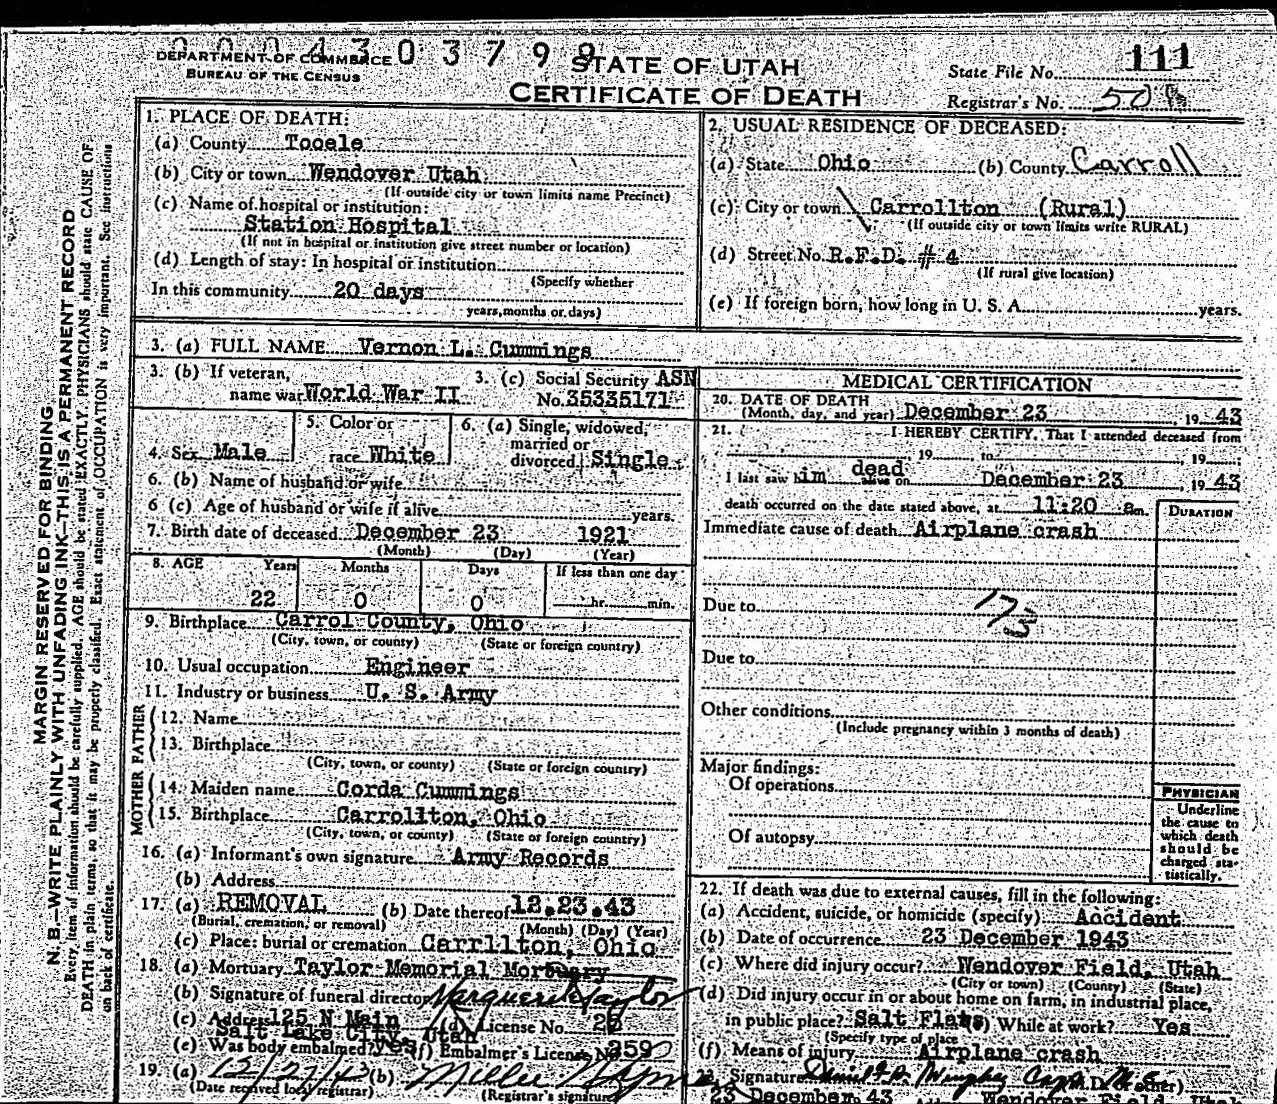 0004303799
DEPARTMENT OF COMMERCE
BUREAU OF THE CENSUS
STATE OF UTAH
CERTIFICATE OF DEATH
State File No. 111
Registrar's No. 50
MARGIN RESERVED FOR BINDING
N. B.—WRITE PLAINLY WITH UNFADING INK—THIS IS A PERMANENT RECORD
Every item of information should be carefully supplied. AGE should be stated EXACTLY. PHYSICIANS should state CAUSE OF
DEATH in plain terms, so that it may be properly classified. Exact statement of OCCUPATION is very important. See instructions
on back of certificate.
1. PLACE OF DEATH:
(a) County Tooele
(b) City or town Wendover Utah
(If outside city or town limits name Precinct)
(c) Name of hospital or institution:
Station Hospital
(If not in hospital or institution give street number or location)
(d) Length of stay: In hospital or institution
(Specify whether
In this community 20 days
years, months or days)
2. USUAL RESIDENCE OF DECEASED:
(a) State Ohio (b) County Carroll
(c) City or town Carrollton (Rural)
(If outside city or town limits write RURAL)
(d) Street No. R.F.D. #4
(If rural give location)
(e) If foreign born, how long in U. S. A. years.
3. (a) FULL NAME Vernon L. Cummings
3. (b) If veteran, name war World War II
3. (c) Social Security ASN
No. 35335171
4. Sex Male
5. Color or race White
6. (a) Single, widowed, married or divorced Single
6. (b) Name of husband or wife
6 (c) Age of husband or wife if alive years.
7. Birth date of deceased December 23 1921
(Month) (Day) (Year)
8. AGE Years Months Days If less than one day
22 0 0 hr. min.
9. Birthplace Carrol County, Ohio
(City, town, or county) (State or foreign country)
10. Usual occupation Engineer
11. Industry or business U. S. Army
FATHER
12. Name
13. Birthplace
(City, town, or county) (State or foreign country)
MOTHER
14. Maiden name Corda Cummings
15. Birthplace Carrollton, Ohio
(City, town, or county) (State or foreign country)
16. (a) Informant's own signature Army Records
(b) Address
17. (a) REMOVAL (b) Date thereof 12.23.43
(Burial, cremation, or removal) (Month) (Day) (Year)
(c) Place: burial or cremation Carrllton, Ohio
18. (a) Mortuary Taylor Memorial Mortuary
(b) Signature of funeral director Marguerite Taylor
(c) Address 125 N Main (d) License No.
Salt Lake City, Utah
(e) Was body embalmed? yes (f) Embalmer's License No. 359
19. (a) 12/27/43 (b)
(Date received local registrar) (Registrar's signature)
MEDICAL CERTIFICATION
20. DATE OF DEATH
(Month, day, and year) December 23, 19 43
21. I HEREBY CERTIFY, That I attended deceased from
, 19 to , 19
I last saw him dead alive on December 23, 19 43
death occurred on the date stated above, at 11:20 am.
DURATION
Immediate cause of death Airplane crash
Due to 173
Due to
Other conditions
(Include pregnancy within 3 months of death)
Major findings:
Of operations
Of autopsy
PHYSICIAN
Underline
the cause to
which death
should be
charged sta-
tistically.
22. If death was due to external causes, fill in the following:
(a) Accident, suicide, or homicide (specify) Accident
(b) Date of occurrence 23 December 1943
(c) Where did injury occur? Wendover Field, Utah
(City or town) (County) (State)
(d) Did injury occur in or about home on farm, in industrial place,
in public place? Salt Flats (e) While at work? Yes
(Specify type of place
(f) Means of injury Airplane crash
Signature
23 December 43 Wendover Field, Utah